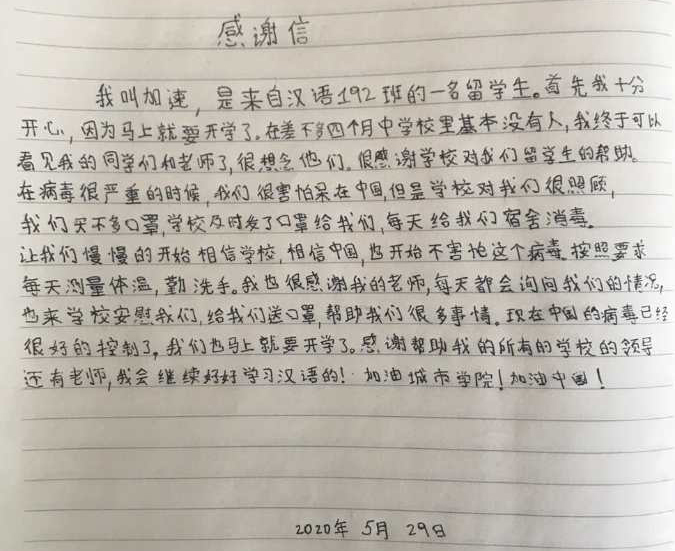 感谢信
我叫加速，是来自汉语192班的一名留学生。首先我十分
开心，因为马上就要开学了。在差不多四个月中学校里基本没有人，我终于可以
看见我的同学们和老师了，很想念他们。很感谢学校对我们留学生的帮助。
在病毒很严重的时候，我们很害怕呆在中国，但是学校对我们很照顾，
我们买不多口罩，学校及时发了口罩给我们，每天给我们宿舍消毒。
让我们慢慢的开始相信学校，相信中国，也开始不害怕这个病毒。按照要求
每天测量体温，勤洗手。我也很感谢我的老师，每天都会询问我们的情况，
也来学校安慰我们，给我们送口罩，帮助我们很多事情。现在中国的病毒已经
很好的控制了，我们也马上就要开学了。感谢帮助我的所有的学校的领导
还有老师，我会继续好好学习汉语的！加油城市学院！加油中国！
2020年 5月 29日